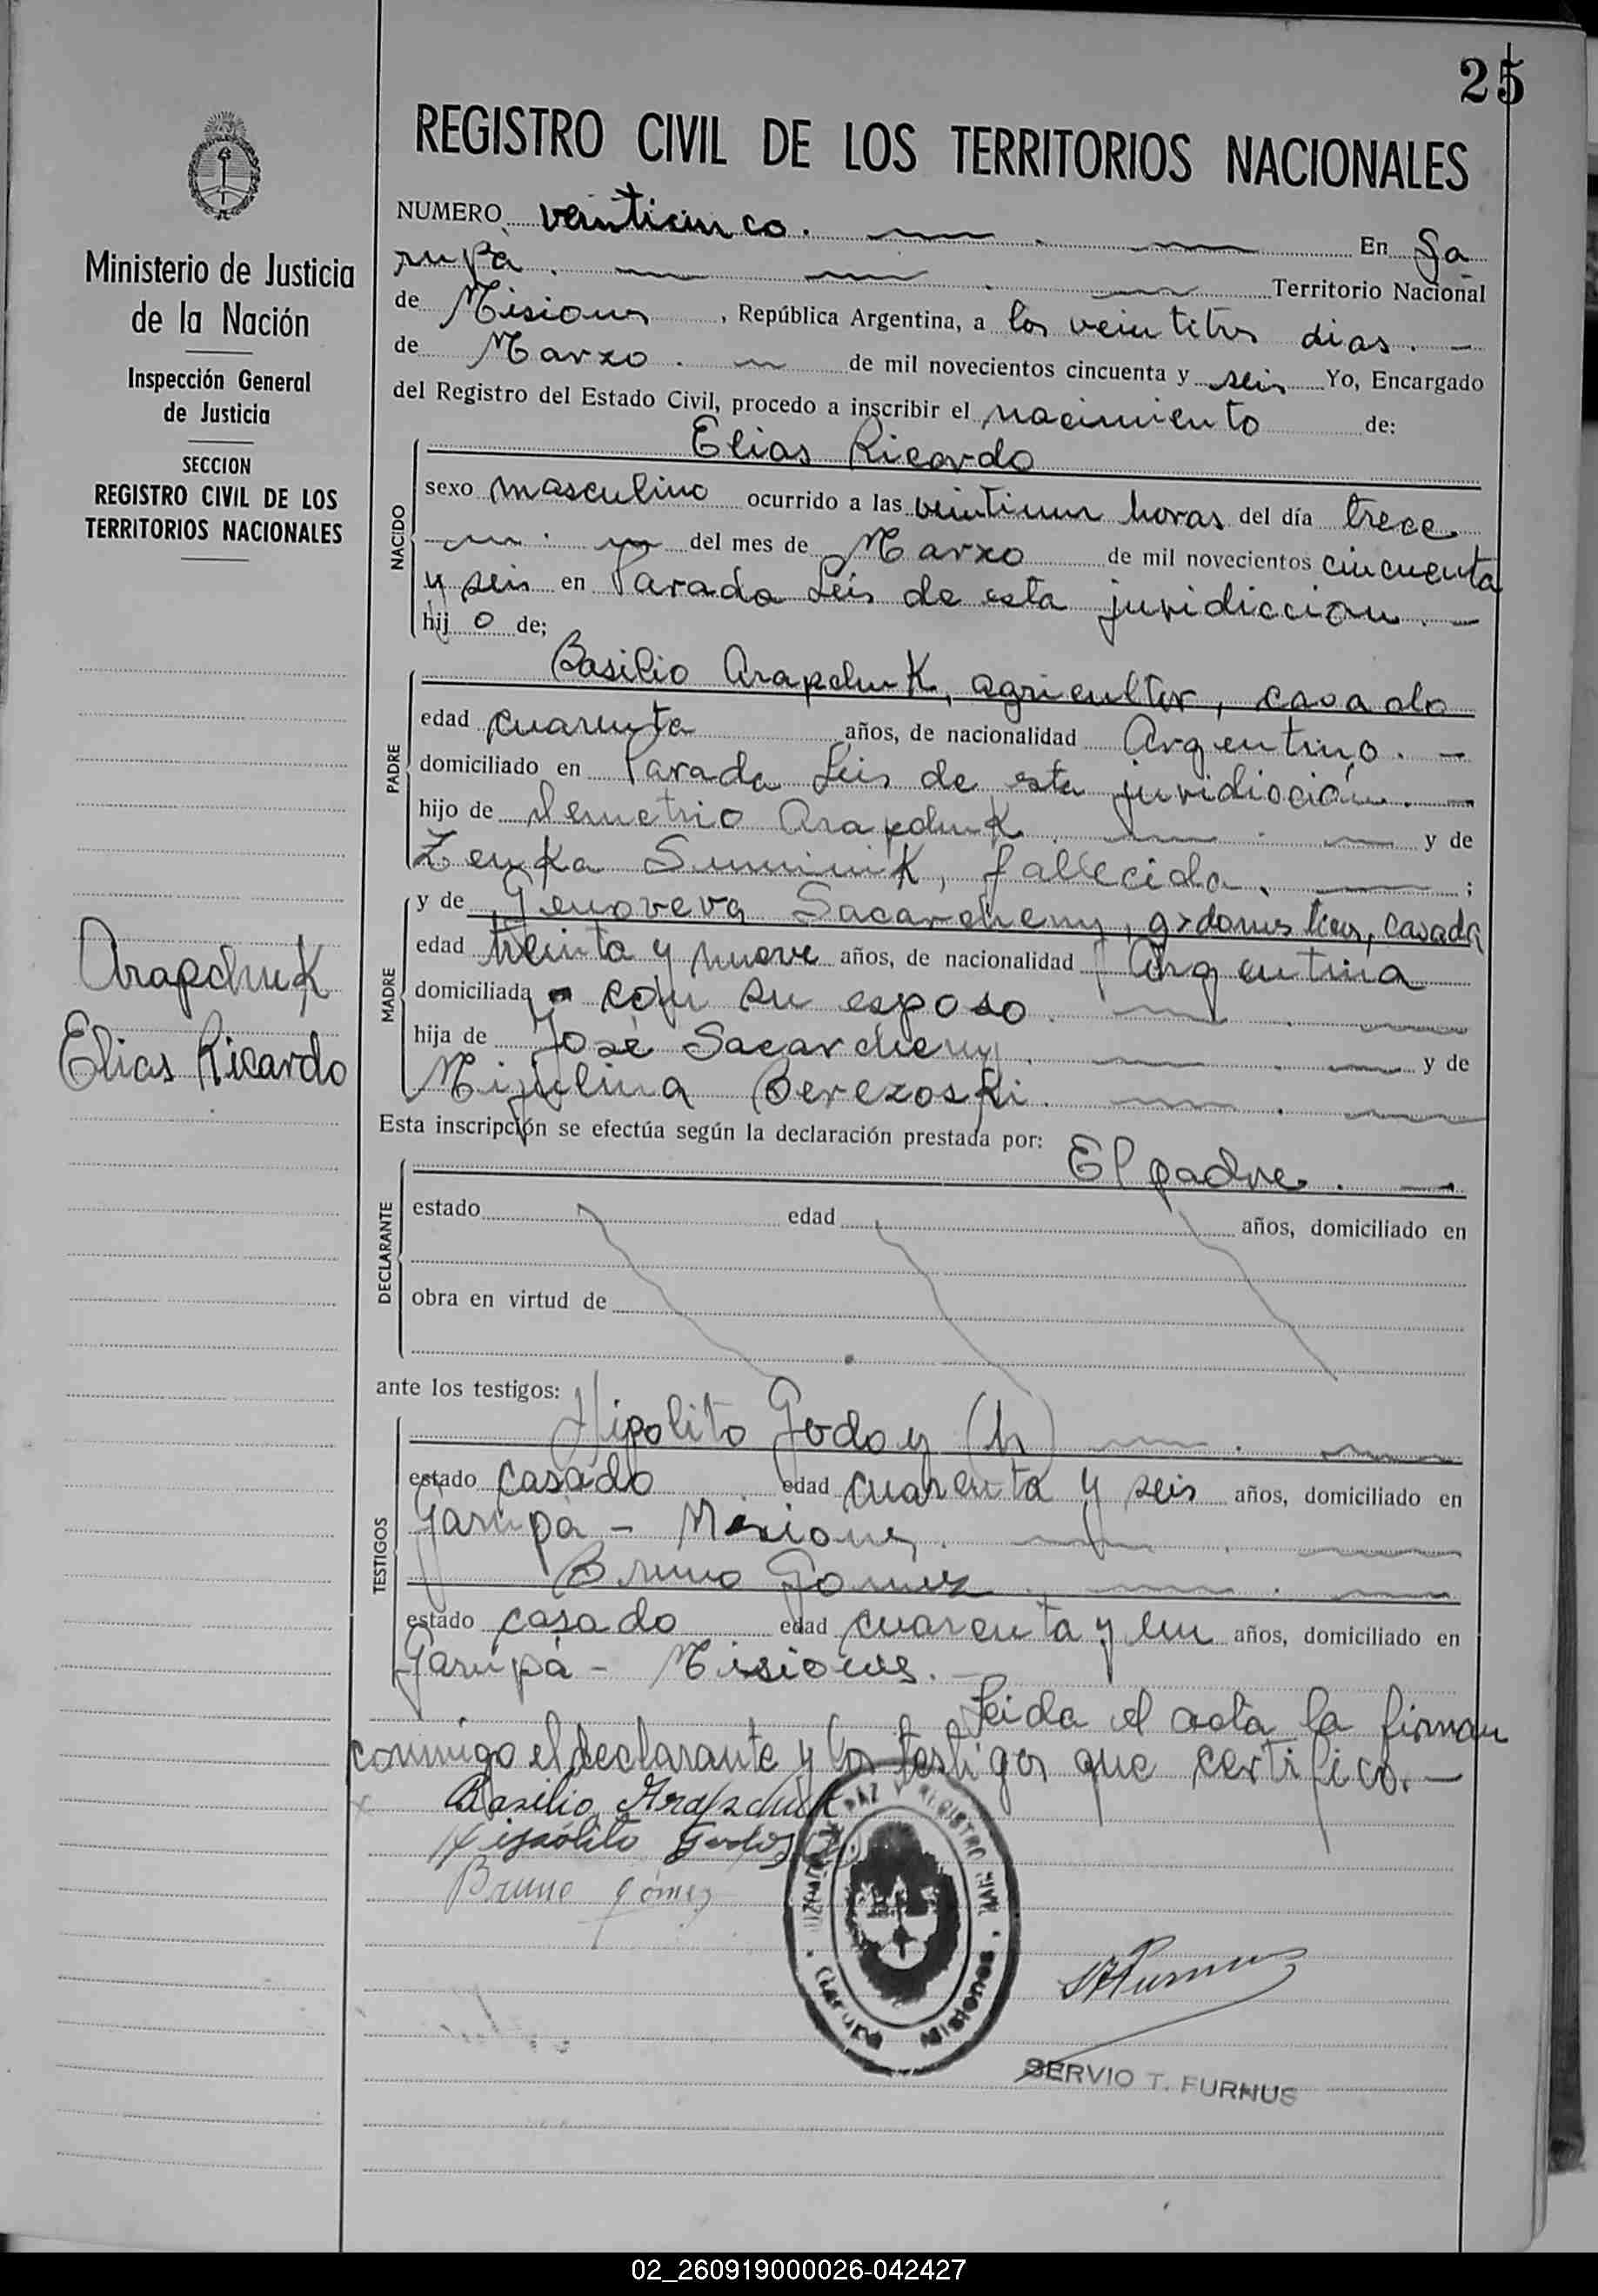 25
REGISTRO CIVIL DE LOS TERRITORIOS NACIONALES
Ministerio de Justicia
de la Nación
Inspección General
de Justicia
SECCION
REGISTRO CIVIL DE LOS
TERRITORIOS NACIONALES
Arapchuk
Elias Ricardo
NUMERO veinticinco. En Ga
rupà. Territorio Nacional
de Misiones, República Argentina, a los veintitres dias. -
de Marzo. de mil novecientos cincuenta y seis Yo, Encargado
del Registro del Estado Civil, procedo a inscribir el nacimiento de:
Elias Ricardo
NACIDO
sexo masculino ocurrido a las veintiun horas del día trece
del mes de Marzo de mil novecientos cincuenta
y seis en Parada Leis de esta juridiccion. -
hijo de;
PADRE
Basilio Arapchuk, agricultor, casado
edad cuarenta años, de nacionalidad Argentino. -
domiciliado en Parada Leis de esta juridicción. -
hijo de Demetrio Arapchuk. y de
Zenka Suminik, fallecida. ;
MADRE
y de Genoveva Sacarcheny, q> domésticos, casada
edad treinta y nueve años, de nacionalidad Argentina
domiciliada con su esposo.
hija de José Sacarcheny. y de
Berezoski.
Esta inscripción se efectúa según la declaración prestada por:
El padre. -
DECLARANTE
estado edad años, domiciliado en
obra en virtud de
ante los testigos:
TESTIGOS
Hipolito Godoy (h)
estado casado edad cuarenta y seis años, domiciliado en
Garupà - Misiones.
Bruno Gomez
estado casado edad cuarenta y un años, domiciliado en
Garupà - Misiones. -
Leida el acta la firman
conmigo el declarante y los testigos que certifico. -
Basilio Arapzchuk
Hipólito Godoy (h)
Bruno Gómez
PAZ Y REGISTRO CIVIL
Garupá Misiones
SERVIO T. FURNUS
02_260919000026-042427